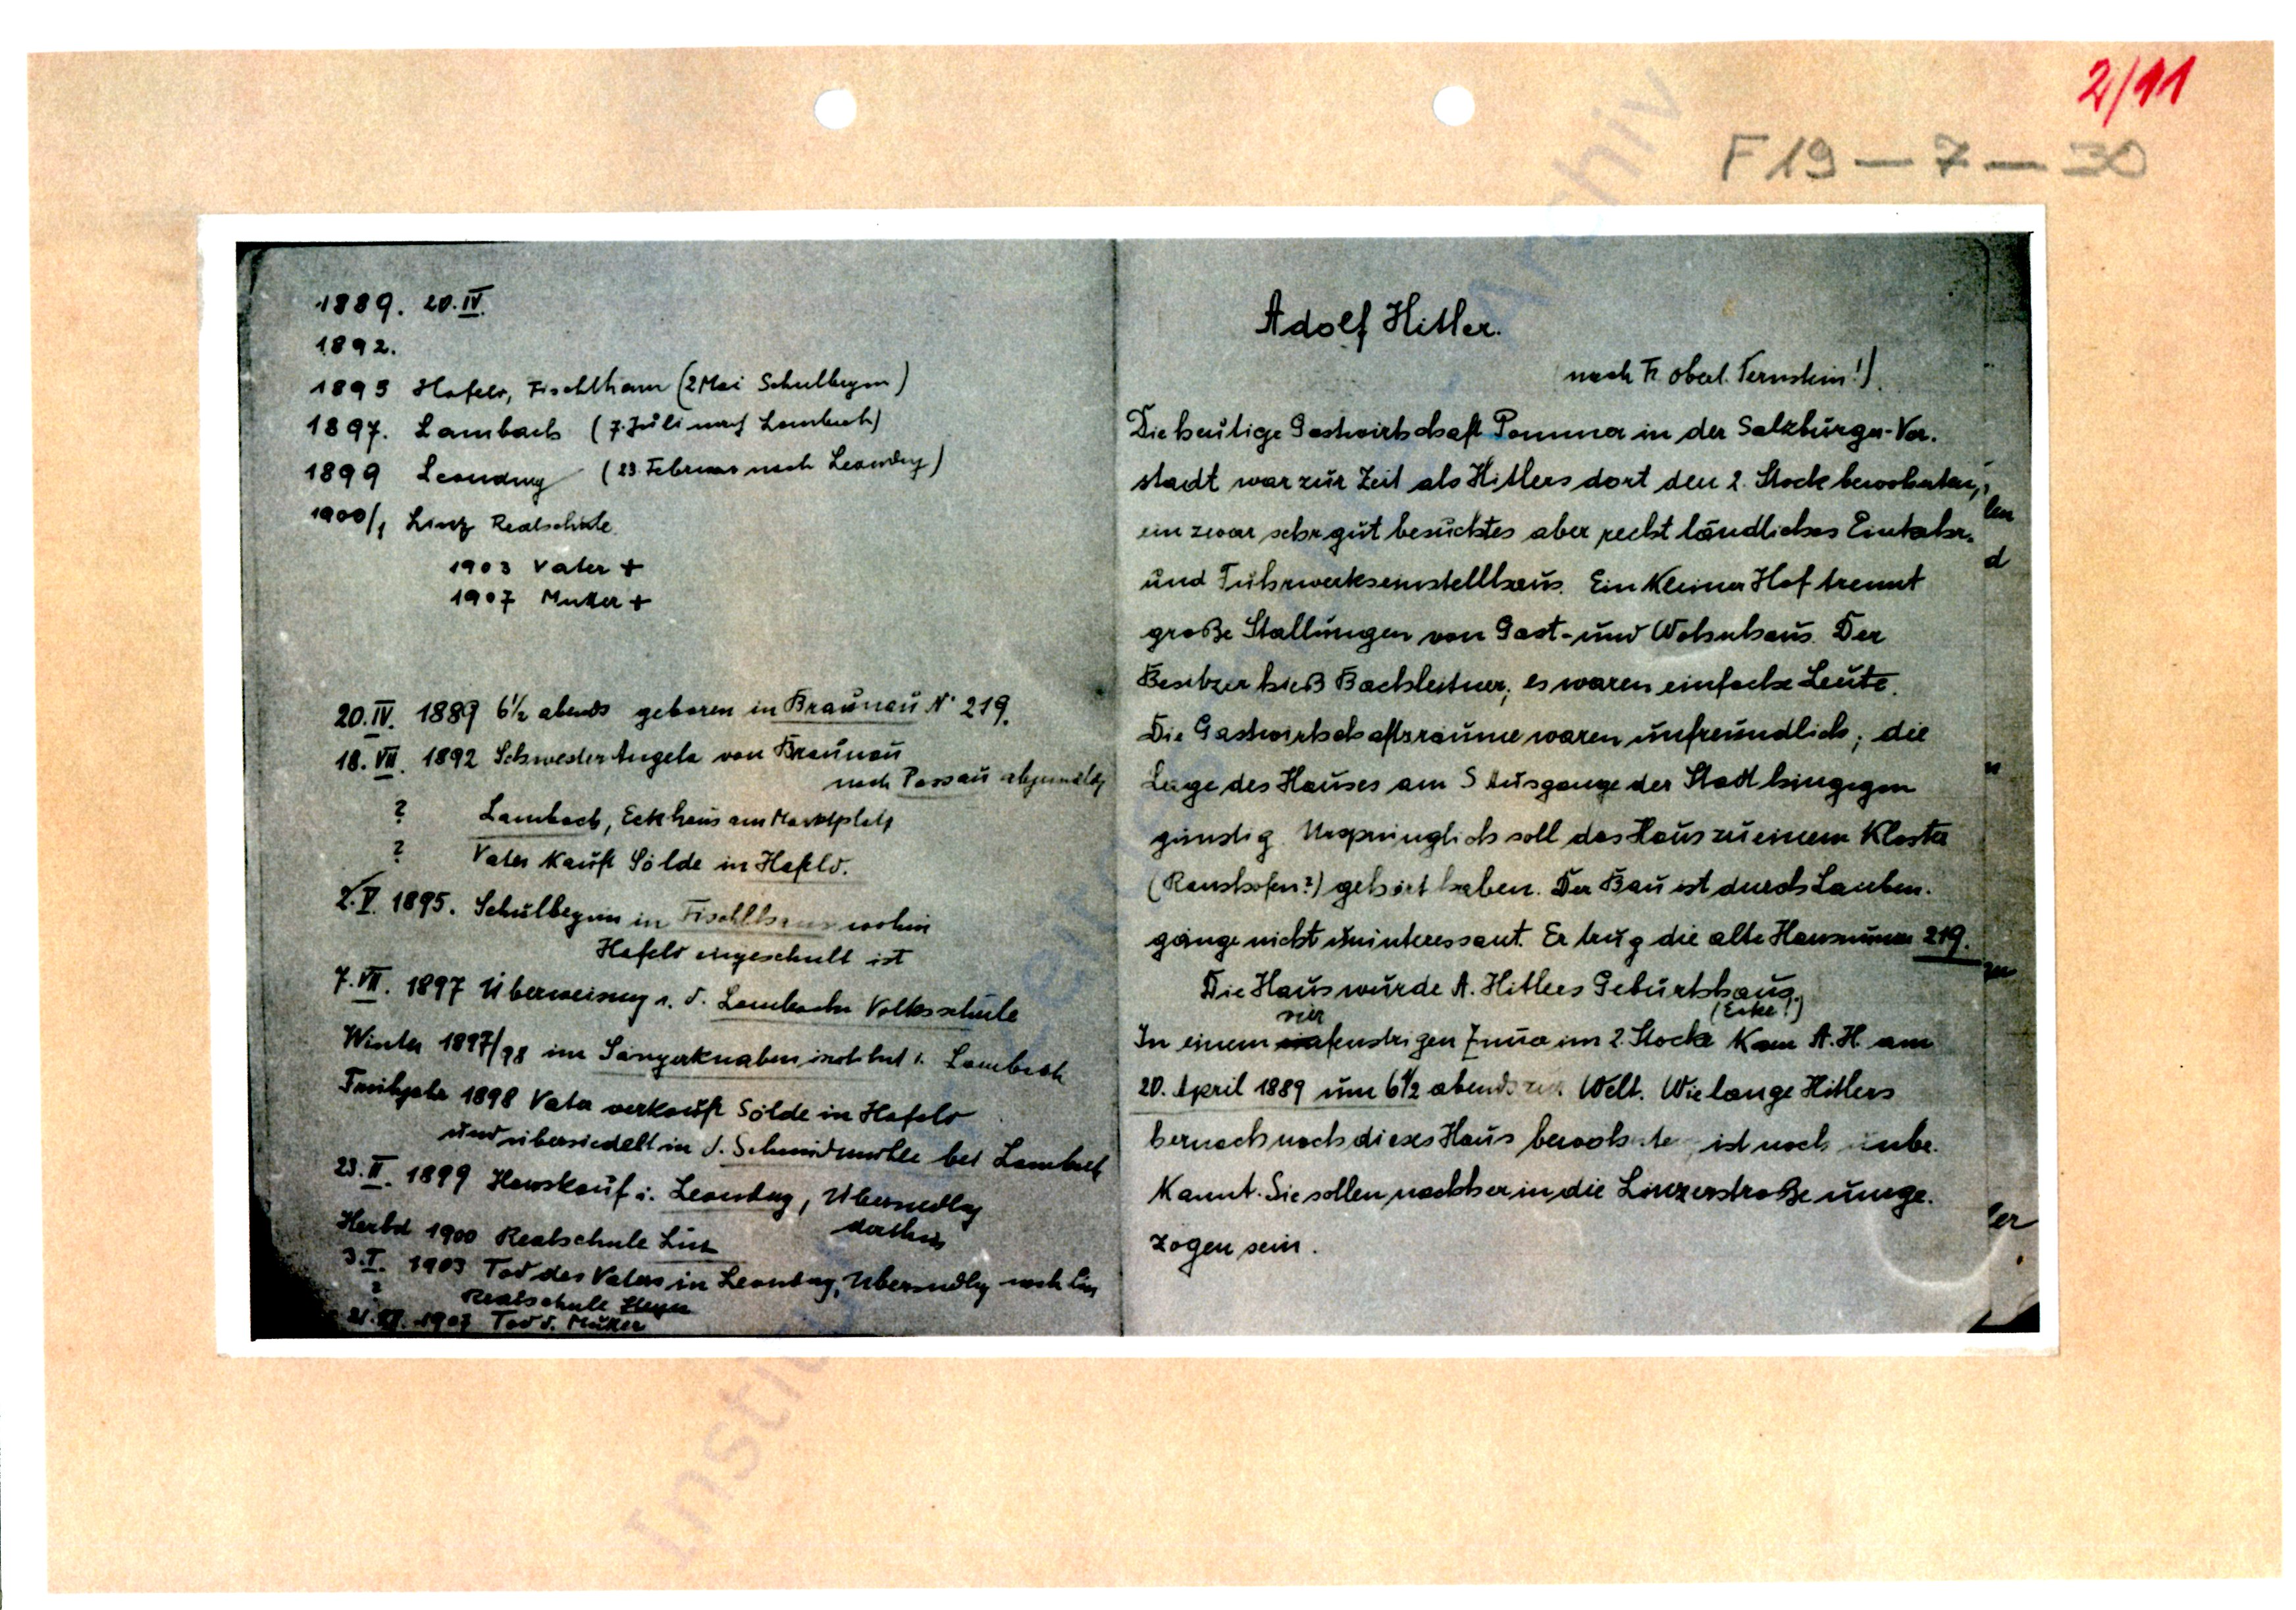 2/11
F19 — 7 — 30
1889. 20.IV.
1892.
1895 Hafeld, Fischlham (2 Mai Schulbeginn)
1897. Lambach (7. Juli nach Lambach)
1899 Leonding (23. Februar nach Leonding)
1900/1 Linz Realschule.
1903 Vater +
1907 Mutter +
20.IV. 1889 6½ abends geboren in Braunau N° 219.
18. VII. 1892 Schwester Angela von Braunau
nach Passau abgemeldet
? Lambach, Eckhaus am Marktplatz
? Vater kauft Sölde in Hafeld.
2.V. 1895. Schulbeginn in Fischlham wohin
Hafeld eingeschult ist
7. VII. 1897 Überweisung i. d. Lambacher Volksschule
Winter 1897/98 im Sängerknabeninstitut i. Lambach
Frühjahr 1898 Vater verkauft Sölde in Hafeld
und übersiedelt in d. Schmidmühle bei Lambach
23. II. 1899 Hauskauf i. Leonding, Übersiedlg
dorthin
Herbst 1900 Realschule Linz
3. I. 1903 Tod des Vaters in Leonding, Übersiedlg nach Linz
? Realschule Steyr
21. XII. 1907 Tod d. Mutter
Adolf Hitler.
nach Fr. Oberl.
Die heutige Gastwirtschaft Pommer in der Salzburger-Vor.
stadt war zur Zeit als Hitlers dort den 2. Stock bewohnten,
ein zwar sehr gut besuchtes aber recht ländliches Einkehr-
und Fuhrwerkseinstellhaus. Ein kleiner Hof trennt
große Stallungen von Gast- und Wohnhaus. Der
Besitzer hieß Bachleitner, es waren einfache Leute.
Die Gastwirtschaftsräume waren unfreundlich; die
Lage des Hauses am S Ausgange der Stadt hingegen
günstig. Ursprünglich soll das Haus zu einem Kloster
(Ranshofen?) gehört haben. Der Bau ist durch Lauben.
gänge nicht uninteressant. Er trug die alte Hausnummer 219.
Die Haus wurde A. Hitlers Geburtshaus.
In einem vierfenstrigen Zimmer im 2. Stocke (Ecke!) kam A.H. am
20. April 1889 um 6½ abends zur Welt. Wie lange Hitlers
hernach noch dieses Haus bewohnte, ist noch unbe.
kannt. Sie sollen nachher in die Linzerstraße umge.
zogen sein.
len
d
n
zu
ler
Institut
Archiv